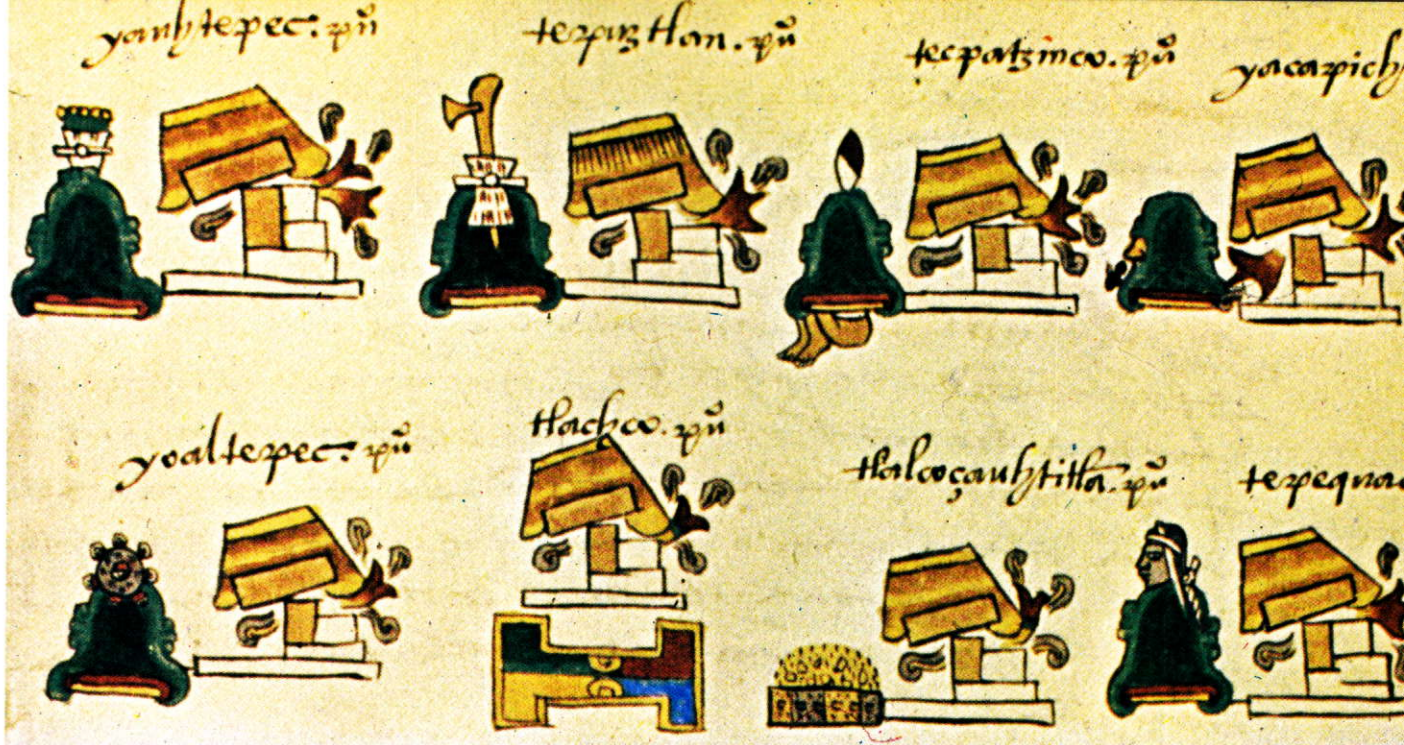 yauhtepec. pũ
tepuztlan. pũ
tecpatzinco. pũ
yacapich
yoaltepec. pũ
tlachco. pũ
tlalcoçauhtitlã. pũ
tepequac